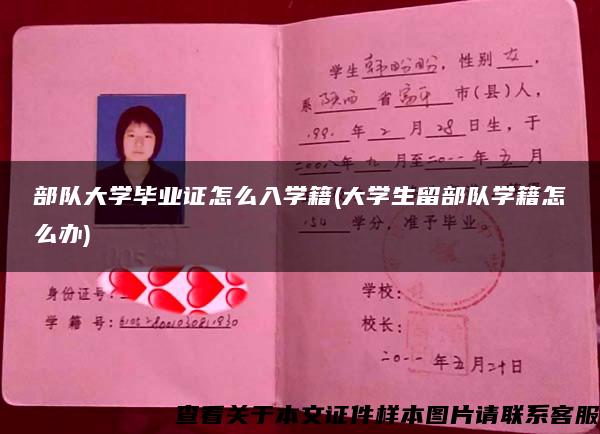 学生韩盼盼，性别女，
系陕西省富平市(县)人，
1991年2月28日生，于
二00八年九月至二0一一年五月
部队大学毕业证怎么入学籍(大学生留部队学籍怎
么办)
154学分，准予毕业。
身份证号：
学籍号：
学校：
校长：
二0一一年五月二十日
查看关于本文证件样本图片请联系客服